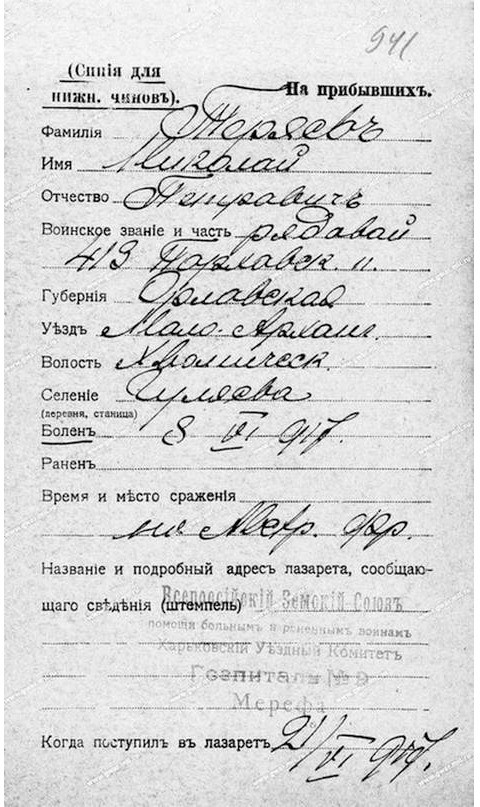 941
(Синія для
нижн. чиновъ). На прибывшихъ.
Фамилія Теряевъ
Имя Николай
Отчество Петровичъ
Воинское званіе и часть рядовой
419 п.
Губернія Орловская
Уѣздъ Мало-Арханг.
Волость
Селеніе Гуляева
(деревня, станица)
Боленъ 8 VI 917.
Раненъ
Время и мѣсто сраженія
на фр.
Названіе и подробный адресъ лазарета, сообщаю-
щаго свѣдѣнія (штемпель) Всероссійскій Земскій Союзъ
помощи больнымъ и раненнымъ воинамъ
Харьковскій Уѣздный Комитетъ
Госпиталь № 9
Мерефа
Когда поступилъ въ лазаретъ 21/VI 917.